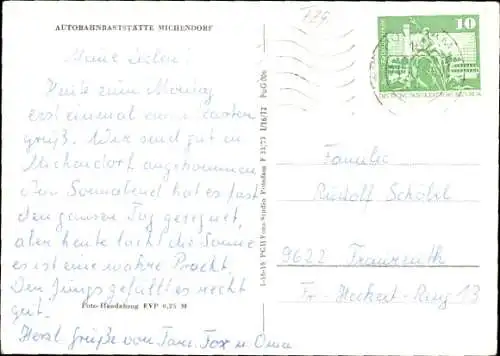 AUTOBAHNRASTSTÄTTE MICHENDORF
Meine Lieben
Heute zum Montag
erst einmal einen Kartengruß. Wir sind gut in
Michendorf angekommen
Am Sonnabend hat es fast
den ganzen Tag geregnet,
aber heute lacht die Sonne
es ist eine wahre Pracht.
Den Jungs gefällt es recht
gut.
Foto-Handabzug EVP 0,25 M
Herzl. Grüße von Fam. Fox u. Oma
PGH Foto-Studio Potsdam
10
Familie
Rudolf Schöbel
9622 Fraureuth
Fr.-Heckert-Ring 13